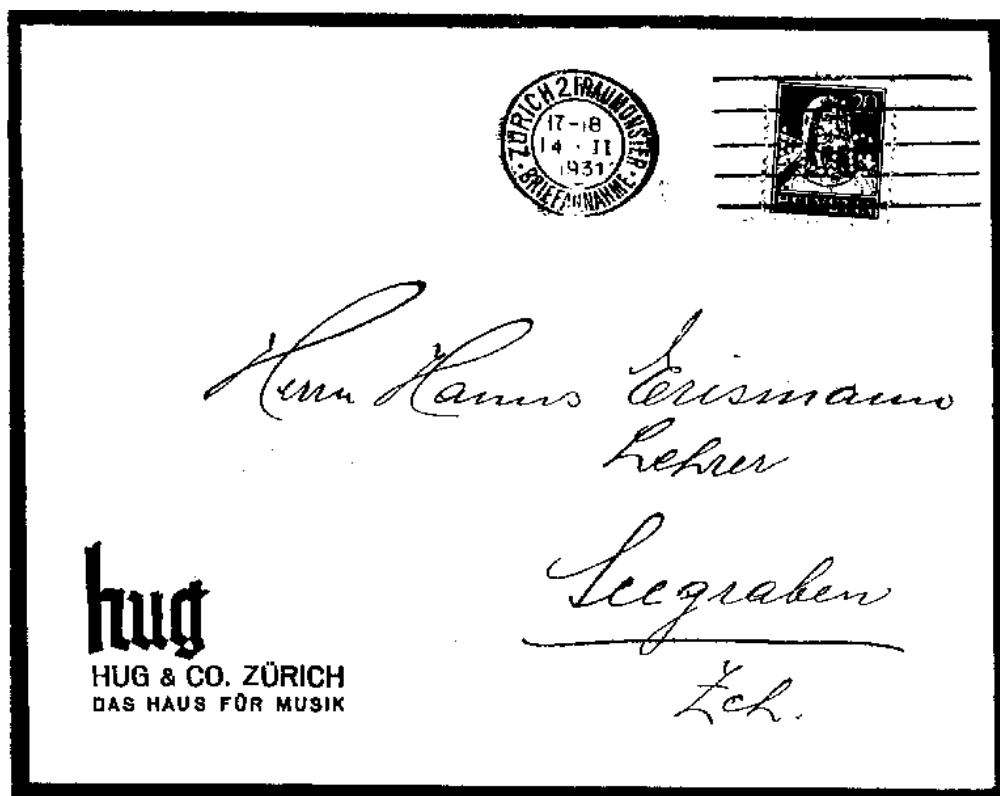 ZÜRICH 2 FRAUMÜNSTER
17-18
14 · II
1931
BRIEFANNAHME
20
Herrn Hanns Erismann
Lehrer
Seegraben
Zch.
hug
HUG & CO. ZÜRICH
DAS HAUS FÜR MUSIK